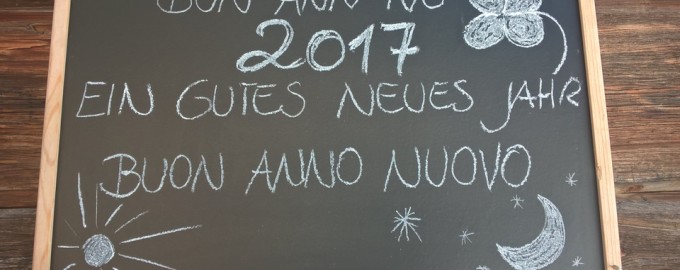 ANN
2017
EIN GUTES NEUES JAHR
BUON ANNO NUOVO